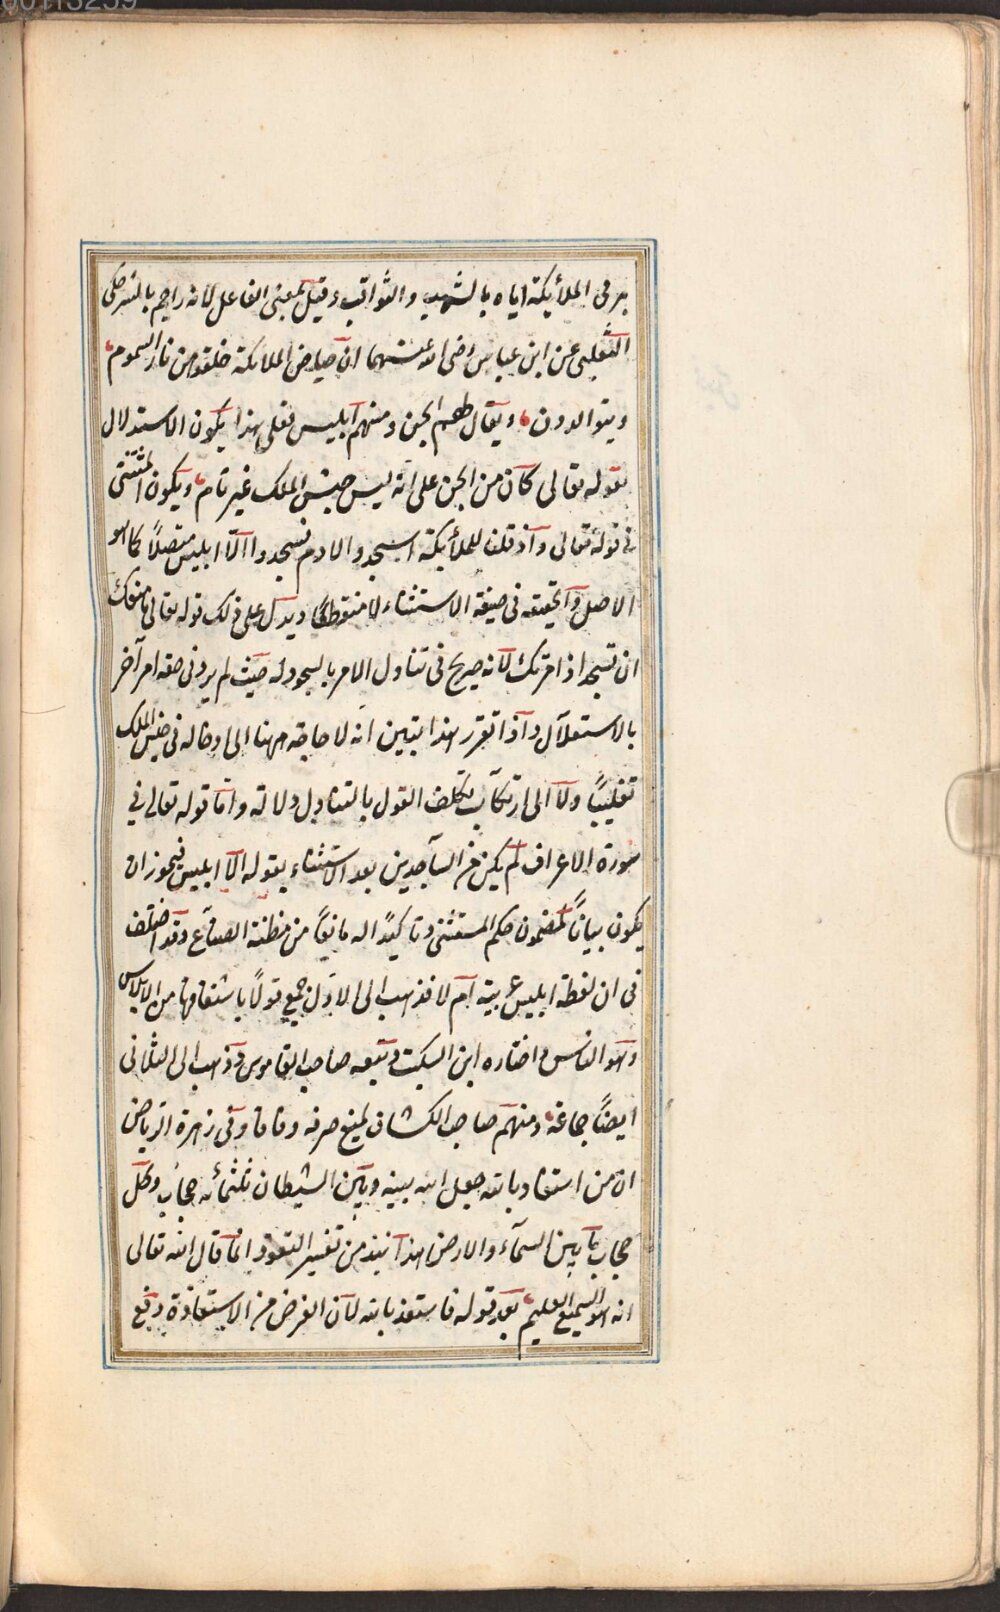 برمى الملائكة اياه بالشهب والثواقب وقيل بمعنى الفاعل لانه راجم بالشر حكى
الثعلبى عن ابن عباس رضى الله عنهما ان من الملائكة خلقو من نار السموم
ويتوالدون ويقال لهم الجن ومنهم ابليس فعلى هذا يكون الاستدلال
بقوله تعالى كان من الجن على انه ليس جنس الملك غير تام ويكون المستثنى
فى قوله تعالى واذ قلنا للملائكة اسجدوا لادم فسجدوا الا ابليس متصلاً كما هو
الاصل والحقيقة فى صيغة الاستثناء لا منقطعًا ويدل على ذلك قوله تعالى ما منعك
ان تسجد اذ امرتك لانه صريح فى تناول الامر بالسجود له حيث لم يرد فى حقه امر آخر
بالاستقلال واذا تقرر هذا يتبين انه لا حاجة ههنا الى ادخاله فى جنس الملك
تغليبًا ولا الى ارتكاب تكلف القول بالتناول دلالة واما قوله تعالى فى
سورة الاعراف لم يكن من الساجدين بعد الاستثناء بقوله الا ابليس فيجوز ان
يكون بيانًا لمضمون حكم المستثنى وتاكيدًا له مانعًا من مظنة وقد اختلف
فى ان لفظة ابليس عربية ام لا فذهب الى الاول جمع قولًا باشتقاقها من الابلاس
وهو الياس واختاره ابن السكيت وتبعه صاحب القاموس وذهب الى الثانى
ايضًا جماعة ومنهم صاحب الكشاف لمنع صرفه وفاقا وفى زهرة الرياض
ان من استعاذ بالله جعل الله بينه وبين الشيطان ثلثمائة حجاب وكل
حجاب ما بين السماء والارض هذا نبذ من تفسير التعوذ انما قال الله تعالى
انه هو السميع العليم بعد قوله فاستعذ بالله لان الغرض من الاستعاذة دفع